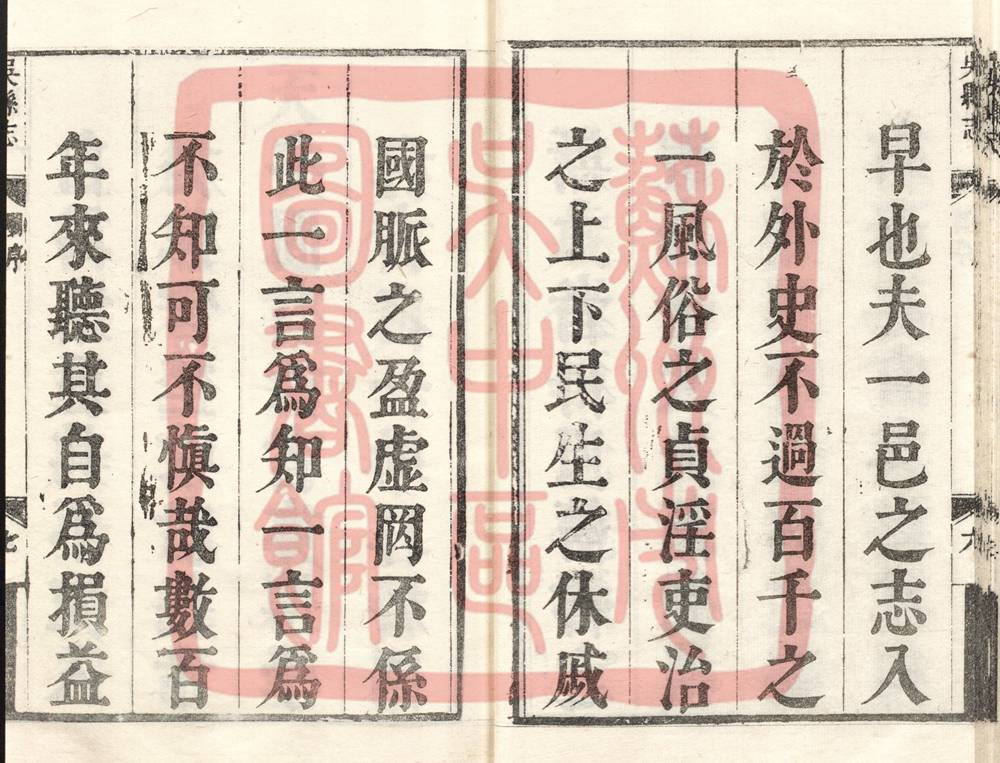 早也夫一邑之志入
於外史不過百千之
一風俗之貞淫吏治
之上下民生之休戚
國脈之盈虛罔不係
此一言爲知一言爲
不知可不慎哉數百
年來聽其自爲損益
吳縣志
六
吳縣志
序
七
蘇州市
吳中區
圖書館